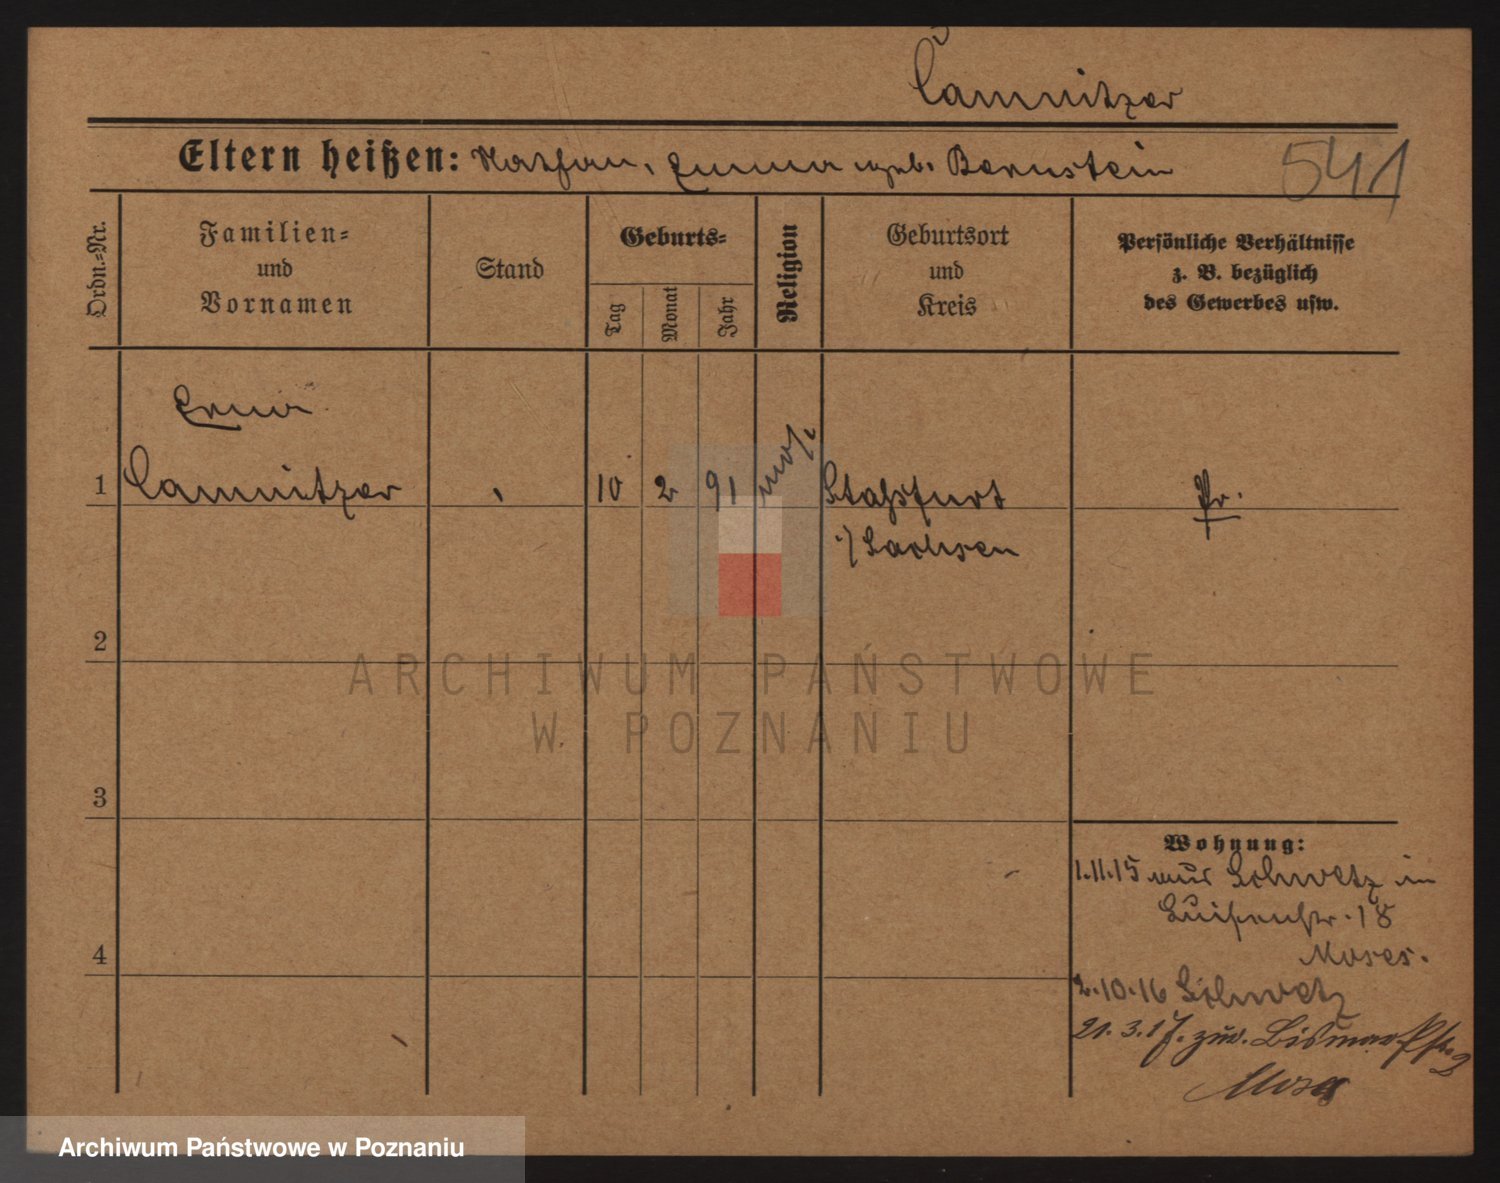 Camnitzer
Eltern heißen: Nathan, Emma geb. Bernstein
541
Ordn.-Nr.
Familien-
und
Vornamen
Stand
Geburts-
Tag
Monat
Jahr
Religion
Geburtsort
und
Kreis
Persönliche Verhältnisse
z. B. bezüglich
des Gewerbes usw.
Erna
1 Camnitzer 10 2 91 mos. Staßfurt Pr.
i/ Sachsen
2
ARCHIWUM PAŃSTWOWE
W POZNANIU
3
Wohnung:
1.11.15 aus Schwetz in
Luisenstr. 18
Moses.
4
2.10.16 Schwetz
21.3.17. zur. Bismarckstr. 2
Moses
Archiwum Państwowe w Poznaniu